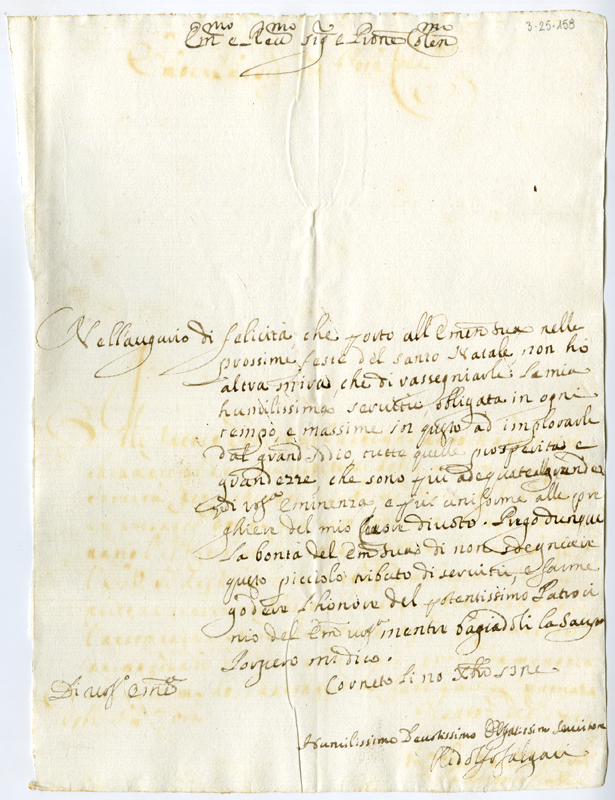 3-25-159
Em.mo e Reu.mo Sig.r e P͞rone Col͞en.mo
Nell'augurio di felicità, che porto all'Emin. Sua nelle
prossime feste del santo Natale non ho
altra mira che di rassegniarle la mia
humilissima seruitù obligata in ogni
tempo, e massime in questo ad implorarle
dal grand Idio tutte quelle prosperità e
grandezze che sono più adequate
di vos.a Eminenza e più uniforme alle pre
ghiere del mio Cuore diuoto. Prego dunque
la bontà del Em. Sua di non sdegniare
questo piccolo tributo di seruitù, e farme
godere l'honore del potentissimo Patroci
nio del Em. vos.a mentre bagiadoli la Sacra
Porpora m'idico.
Corneto li
Di vos.a Em.za
Humilissimo Deuotissimo Oblgatissim Seruitore
Ridolfo